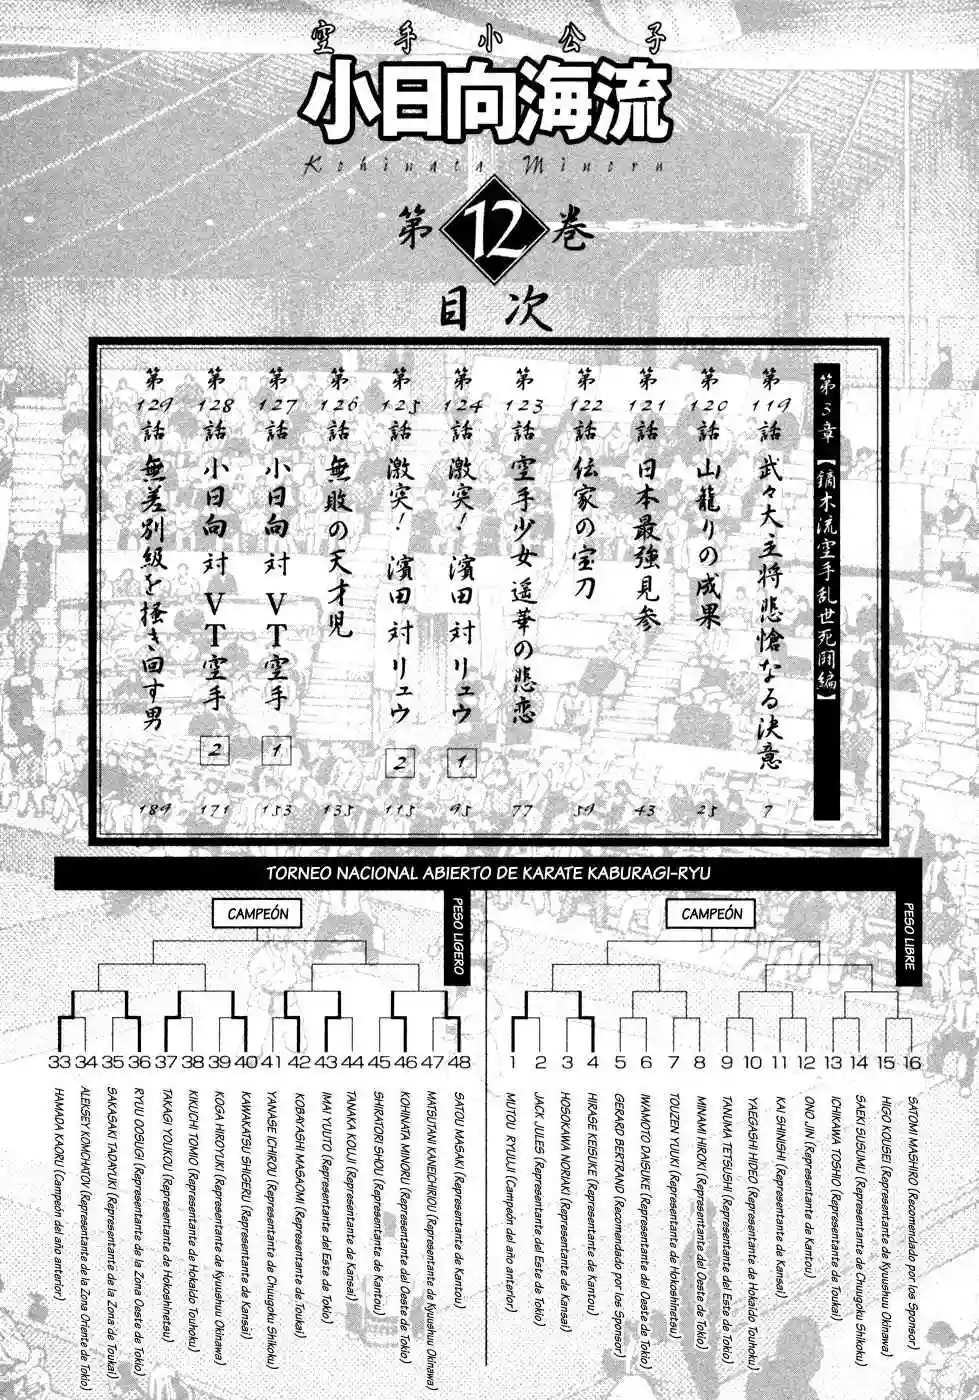 空手小公子
小日向海流
Kohinata Minoru
第12巻
目次
第3章【鏑木流空手乱世死闘編】
第119話 武々大主将悲愴なる決意 7
第120話 山籠りの成果 25
第121話 日本最強見参 43
第122話 伝家の宝刀 59
第123話 空手少女遥華の悲恋 77
第124話 激突！ 濱田対リュウ 1 95
第125話 激突！ 濱田対リュウ 2 115
第126話 無敗の天才児 135
第127話 小日向対VT空手 1 153
第128話 小日向対VT空手 2 171
第129話 無差別級を掻き回す男 189
TORNEO NACIONAL ABIERTO DE KARATE KABURAGI-RYU
PESO LIGERO
CAMPEÓN
33 HAMADA KAORU (Campeón del año anterior)
34 ALEKSEY KOMCHATOV (Representante de la Zona Oriente de Tokio)
35 SAKASAKI TADAYUKI (Representante de la Zona de Toukai)
36 RYUU OOSUGI (Representante de la Zona Oeste de Tokio)
37 TAKAGI YOUKOU (Representante de Hokoshinetsu)
38 KIKUCHI TOMIO (Representante de Hokaido Touhoku)
39 KOGA HIROYUKI (Representante de Kyuushuu Okinawa)
40 KAWAKATSU SHIGERU (Representante de Kansai)
41 YANASE ICHIROU (Representante de Chuugoku Shikoku)
42 KOBAYASHI MASAOMI (Representante de Toukai)
43 IMAI YUUTO (Representante del Este de Tokio)
44 TANAKA KOUJI (Representante de Kansai)
45 SHIRATORI SHOU (Representante de Kantou)
46 KOHINATA MINORU (Representante del Oeste de Tokio)
47 MATSUTANI KANEICHIROU (Representante de Kyuushuu Okinawa)
48 SATOU MASAKI (Representante de Kantou)
PESO LIBRE
CAMPEÓN
1 MUTOU RYUUJI (Campeón del año anterior)
2 JACK JULES (Representante del Este de Tokio)
3 HOSOKAWA NORIAKI (Representante de Kansai)
4 HIRASE KEISUKE (Representante de Kantou)
5 GERARD BERTRAND (Recomendado por los Sponsor)
6 IWAMOTO DAISUKE (Representante del Oeste de Tokio)
7 TOUZEN YUUKI (Representante de Hokoshinetsu)
8 MINAMI HIROKI (Representante del Oeste de Tokio)
9 TANUMA TETSUSHI (Representante del Este de Tokio)
10 YAEGASHI HIDEO (Representante de Hokaido Touhoku)
11 KAI SHINISHI (Representante de Kansai)
12 ONO JIN (Representante de Kantou)
13 ICHIKAWA TOSHIO (Representante de Toukai)
14 SAEKI SUSUMU (Representante de Chuugoku Shikoku)
15 HIGO KOUSEI (Representante de Kyuushuu Okinawa)
16 SATOMI MASHIRO (Recomendado por los Sponsor)